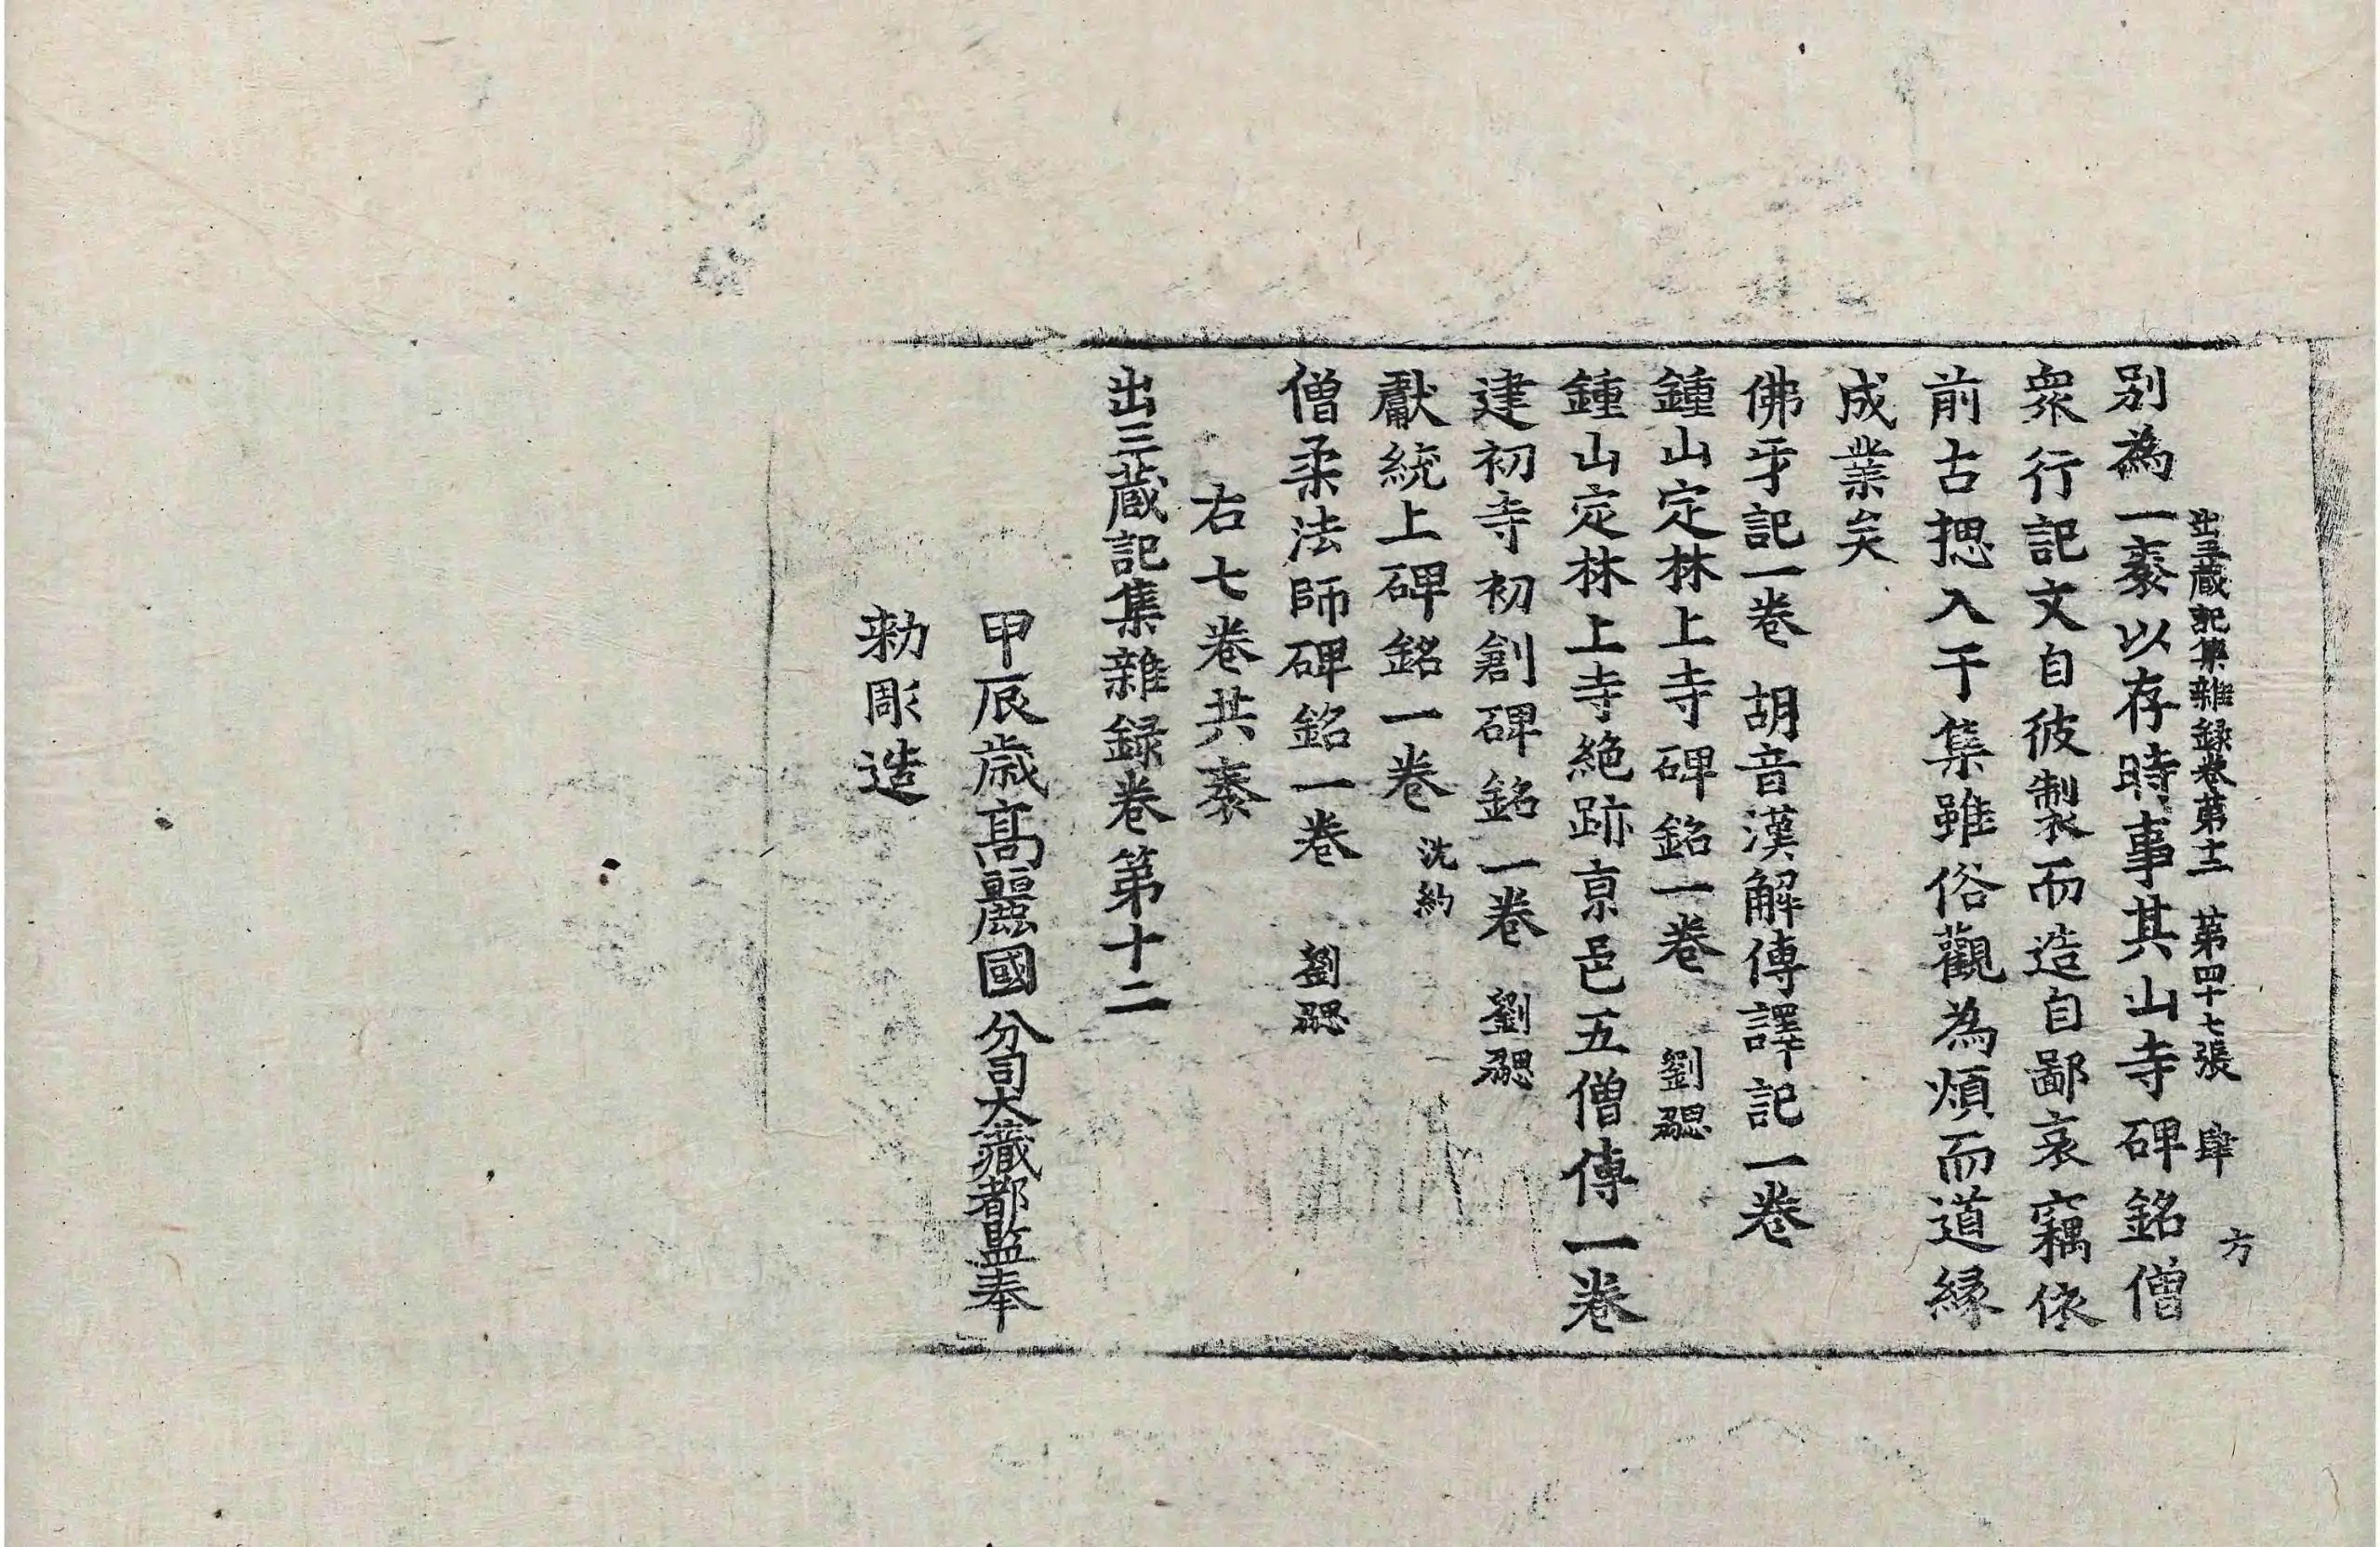 出三藏記集雜録卷第十二 第四十七張 肆 方
別為一袠以存時事其山寺碑銘僧
衆行記文自彼製而造自鄙哀竊依
前古揔入于集雖俗觀為煩而道縁
成業矣
佛牙記一卷 胡音漢解傳譯記一卷
鍾山定林上寺碑銘一卷 劉勰
鍾山定林上寺絶跡京邑五僧傳一卷
建初寺初創碑銘一卷 劉勰
獻統上碑銘一卷 沈約
僧柔法師碑銘一卷 劉勰
右七卷共袠
出三藏記集雜録卷第十二
甲辰歳高麗國分司大藏都監奉
勑彫造